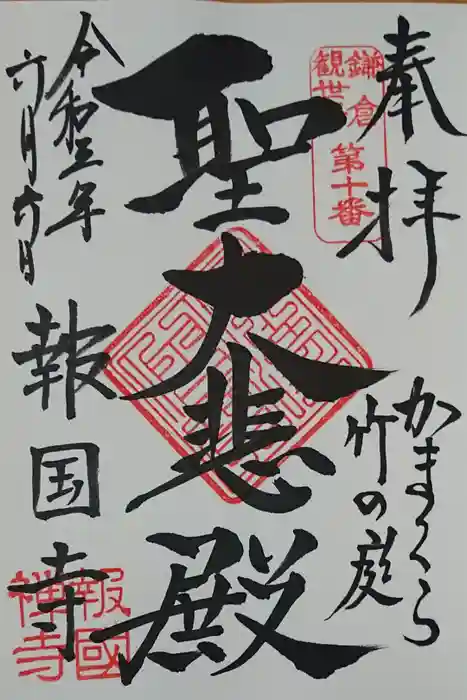 奉拝
鎌倉
観世
第十番
かまくら
竹の庭
聖大悲殿
令和三年
六月六日
報国寺
報國
禅寺